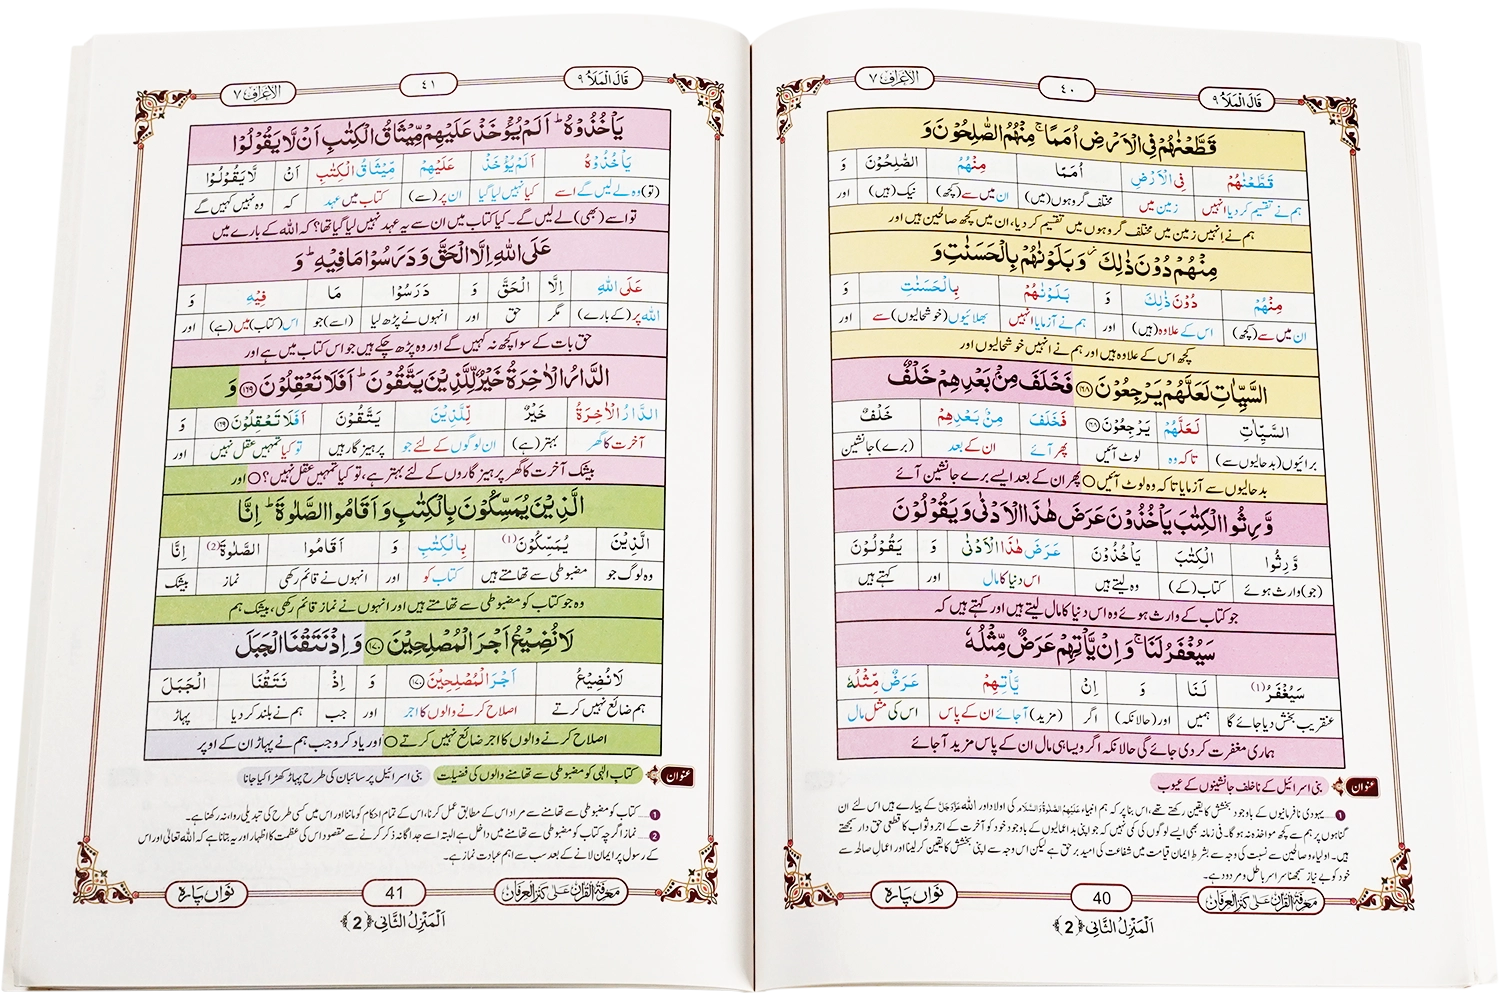 قَالَ الْمَلَاُ ۹
٤٠
الْاَعْرَاف ۷
قَطَّعْنٰهُمْ فِی الْاَرْضِ اُمَمًا ۚ مِنْهُمُ الصّٰلِحُوْنَ وَ
قَطَّعْنٰهُمْ فِی الْاَرْضِ اُمَمًا مِنْهُمُ الصّٰلِحُوْنَ وَ
ہم نے تقسیم کر دیا انہیں زمین میں مختلف گروہوں (میں) ان میں سے (کچھ) نیک (ہیں) اور
ہم نے انہیں زمین میں مختلف گروہوں میں تقسیم کر دیا، ان میں کچھ صالحین ہیں اور
مِنْهُمْ دُوْنَ ذٰلِكَ ٘ وَ بَلَوْنٰهُمْ بِالْحَسَنٰتِ وَ
مِنْهُمْ دُوْنَ ذٰلِكَ وَ بَلَوْنٰهُمْ بِالْحَسَنٰتِ وَ
ان میں سے (کچھ) اس کے علاوہ (ہیں) اور ہم نے آزمایا انہیں بھلائیوں (خوشحالیوں) سے اور
کچھ اس کے علاوہ ہیں اور ہم نے انہیں خوشحالیوں اور
السَّیِّاٰتِ لَعَلَّهُمْ یَرْجِعُوْنَ ﴿۱۶۸﴾ فَخَلَفَ مِنْۢ بَعْدِهِمْ خَلْفٌ
السَّیِّاٰتِ لَعَلَّهُمْ یَرْجِعُوْنَ ﴿۱۶۸﴾ فَخَلَفَ مِنْۢ بَعْدِهِمْ خَلْفٌ
برائیوں (بدحالیوں سے) تاکہ وہ لوٹ آئیں پھر آئے ان کے بعد (برے) جانشین
بدحالیوں سے آزمایا تاکہ وہ لوٹ آئیں ○ پھر ان کے بعد ایسے برے جانشین آئے
وَّرِثُوا الْكِتٰبَ یَاْخُذُوْنَ عَرَضَ هٰذَا الْاَدْنٰى وَ یَقُوْلُوْنَ
وَّرِثُوا الْكِتٰبَ یَاْخُذُوْنَ عَرَضَ هٰذَا الْاَدْنٰى وَ یَقُوْلُوْنَ
(جو) وارث ہوئے کتاب (کے) وہ لیتے ہیں اس دنیا کا مال اور کہتے ہیں
جو کتاب کے وارث ہوئے وہ اس دنیا کا مال لیتے ہیں اور کہتے ہیں کہ
سَیُغْفَرُ لَنَا ۚ وَ اِنْ یَّاْتِهِمْ عَرَضٌ مِّثْلُهٗ
سَیُغْفَرُ (1) لَنَا وَ اِنْ یَّاْتِهِمْ عَرَضٌ مِّثْلُهٗ
عنقریب بخش دیا جائے گا ہمیں اور (حالانکہ) اگر (مزید) آ جائے ان کے پاس اس کی مثل مال
ہماری مغفرت کر دی جائے گی حالانکہ اگر ویسا ہی مال ان کے پاس مزید آ جائے
عنوان بنی اسرائیل کے ناخلف جانشینوں کے عیوب
❶ ....یہودی نافرمانیوں کے باوجود بخشش کا یقین رکھتے تھے، اس بنا پر کہ ہم انبیاء عَلَیْهِمُ الصَّلٰوۃُ وَالسَّلَام کی اولاد اور اللہ عَزَّوَجَلَّ کے پیارے ہیں اس لئے ان
گناہوں پر ہم سے کچھ مواخذہ نہ ہو گا۔ فی زمانہ بھی ایسے لوگوں کی کمی نہیں کہ جو اپنی بداعمالیوں کے باوجود خود کو آخرت کے اجر و ثواب کا قطعی حق دار سمجھتے
ہیں۔ اولیاء و صالحین سے نسبت کی وجہ سے بشرطِ ایمان قیامت میں شفاعت کی امید برحق ہے لیکن اس وجہ سے اپنی بخشش کا یقین کر لینا اور اعمالِ صالحہ سے
خود کو بے نیاز سمجھنا سراسر باطل و مردود ہے۔
معرفۃ القرآن علی کنز العرفان
40
نواں پارہ
اَلْمَنْزِلُ الثَّانِی ﴿2﴾
قَالَ الْمَلَاُ ۹
٤١
الْاَعْرَاف ۷
یَاْخُذُوْهُ ؕ اَلَمْ یُؤْخَذْ عَلَیْهِمْ مِّیْثَاقُ الْكِتٰبِ اَنْ لَّا یَقُوْلُوْا
یَاْخُذُوْهُ اَلَمْ یُؤْخَذْ عَلَیْهِمْ مِّیْثَاقُ الْكِتٰبِ اَنْ لَّا یَقُوْلُوْا
(تو) وہ لے لیں گے اسے کیا نہیں لیا گیا ان پر (سے) کتاب میں عہد کہ وہ نہیں کہیں گے
تو اسے (بھی) لے لیں گے۔ کیا کتاب میں ان سے یہ عہد نہیں لیا گیا تھا؟ کہ اللہ کے بارے میں
عَلَى اللّٰهِ اِلَّا الْحَقَّ وَ دَرَسُوْا مَا فِیْهِ ؕ وَ
عَلَى اللّٰهِ اِلَّا الْحَقَّ وَ دَرَسُوْا مَا فِیْهِ وَ
اللہ پر (کے بارے) مگر حق اور انہوں نے پڑھ لیا (اسے) جو اس (کتاب) میں (ہے) اور
حق بات کے سوا کچھ نہ کہیں گے اور وہ پڑھ چکے ہیں جو اس کتاب میں ہے اور
الدَّارُ الْاٰخِرَةُ خَیْرٌ لِّلَّذِیْنَ یَتَّقُوْنَ ؕ اَفَلَا تَعْقِلُوْنَ ﴿۱۶۹﴾ وَ
الدَّارُ الْاٰخِرَةُ خَیْرٌ لِّلَّذِیْنَ یَتَّقُوْنَ اَفَلَا تَعْقِلُوْنَ ﴿۱۶۹﴾ وَ
آخرت کا گھر بہتر (ہے) ان لوگوں کے لئے جو پرہیز گار ہیں تو کیا تمہیں عقل نہیں اور
بیشک آخرت کا گھر پرہیز گاروں کے لئے بہتر ہے، تو کیا تمہیں عقل نہیں؟ ○ اور
الَّذِیْنَ یُمَسِّكُوْنَ بِالْكِتٰبِ وَ اَقَامُوا الصَّلٰوةَ ؕ اِنَّا
الَّذِیْنَ یُمَسِّكُوْنَ (1) بِالْكِتٰبِ وَ اَقَامُوا الصَّلٰوةَ (2) اِنَّا
وہ لوگ جو مضبوطی سے تھامتے ہیں کتاب کو اور انہوں نے قائم رکھی نماز بیشک
وہ جو کتاب کو مضبوطی سے تھامتے ہیں اور انہوں نے نماز قائم رکھی، بیشک ہم
لَا نُضِیْعُ اَجْرَ الْمُصْلِحِیْنَ ﴿۱۷۰﴾ وَ اِذْ نَتَقْنَا الْجَبَلَ
لَا نُضِیْعُ اَجْرَ الْمُصْلِحِیْنَ ﴿۱۷۰﴾ وَ اِذْ نَتَقْنَا الْجَبَلَ
ہم ضائع نہیں کرتے اصلاح کرنے والوں کا اجر اور جب ہم نے بلند کر دیا پہاڑ
اصلاح کرنے والوں کا اجر ضائع نہیں کرتے ○ اور یاد کرو جب ہم نے پہاڑ ان کے اوپر
عنوان کتابِ الٰہی کو مضبوطی سے تھامنے والوں کی فضیلت بنی اسرائیل پر سائبان کی طرح پہاڑ کھڑا کیا جانا
❶ ....کتاب کو مضبوطی سے تھامنے سے مراد اس کے مطابق عمل کرنا، اس کے تمام احکام کو ماننا اور اس میں کسی طرح کی تبدیلی روا نہ رکھنا ہے۔
❷ ....نماز اگرچہ کتاب کو مضبوطی سے تھامنے میں داخل ہے البتہ اسے جداگانہ ذکر کرنے سے مقصود اس کی عظمت کا اظہار اور یہ بتانا ہے کہ اللہ تعالیٰ اور اس
کے رسول پر ایمان لانے کے بعد سب سے اہم عبادت نماز ہے۔
معرفۃ القرآن علی کنز العرفان
41
نواں پارہ
اَلْمَنْزِلُ الثَّانِی ﴿2﴾